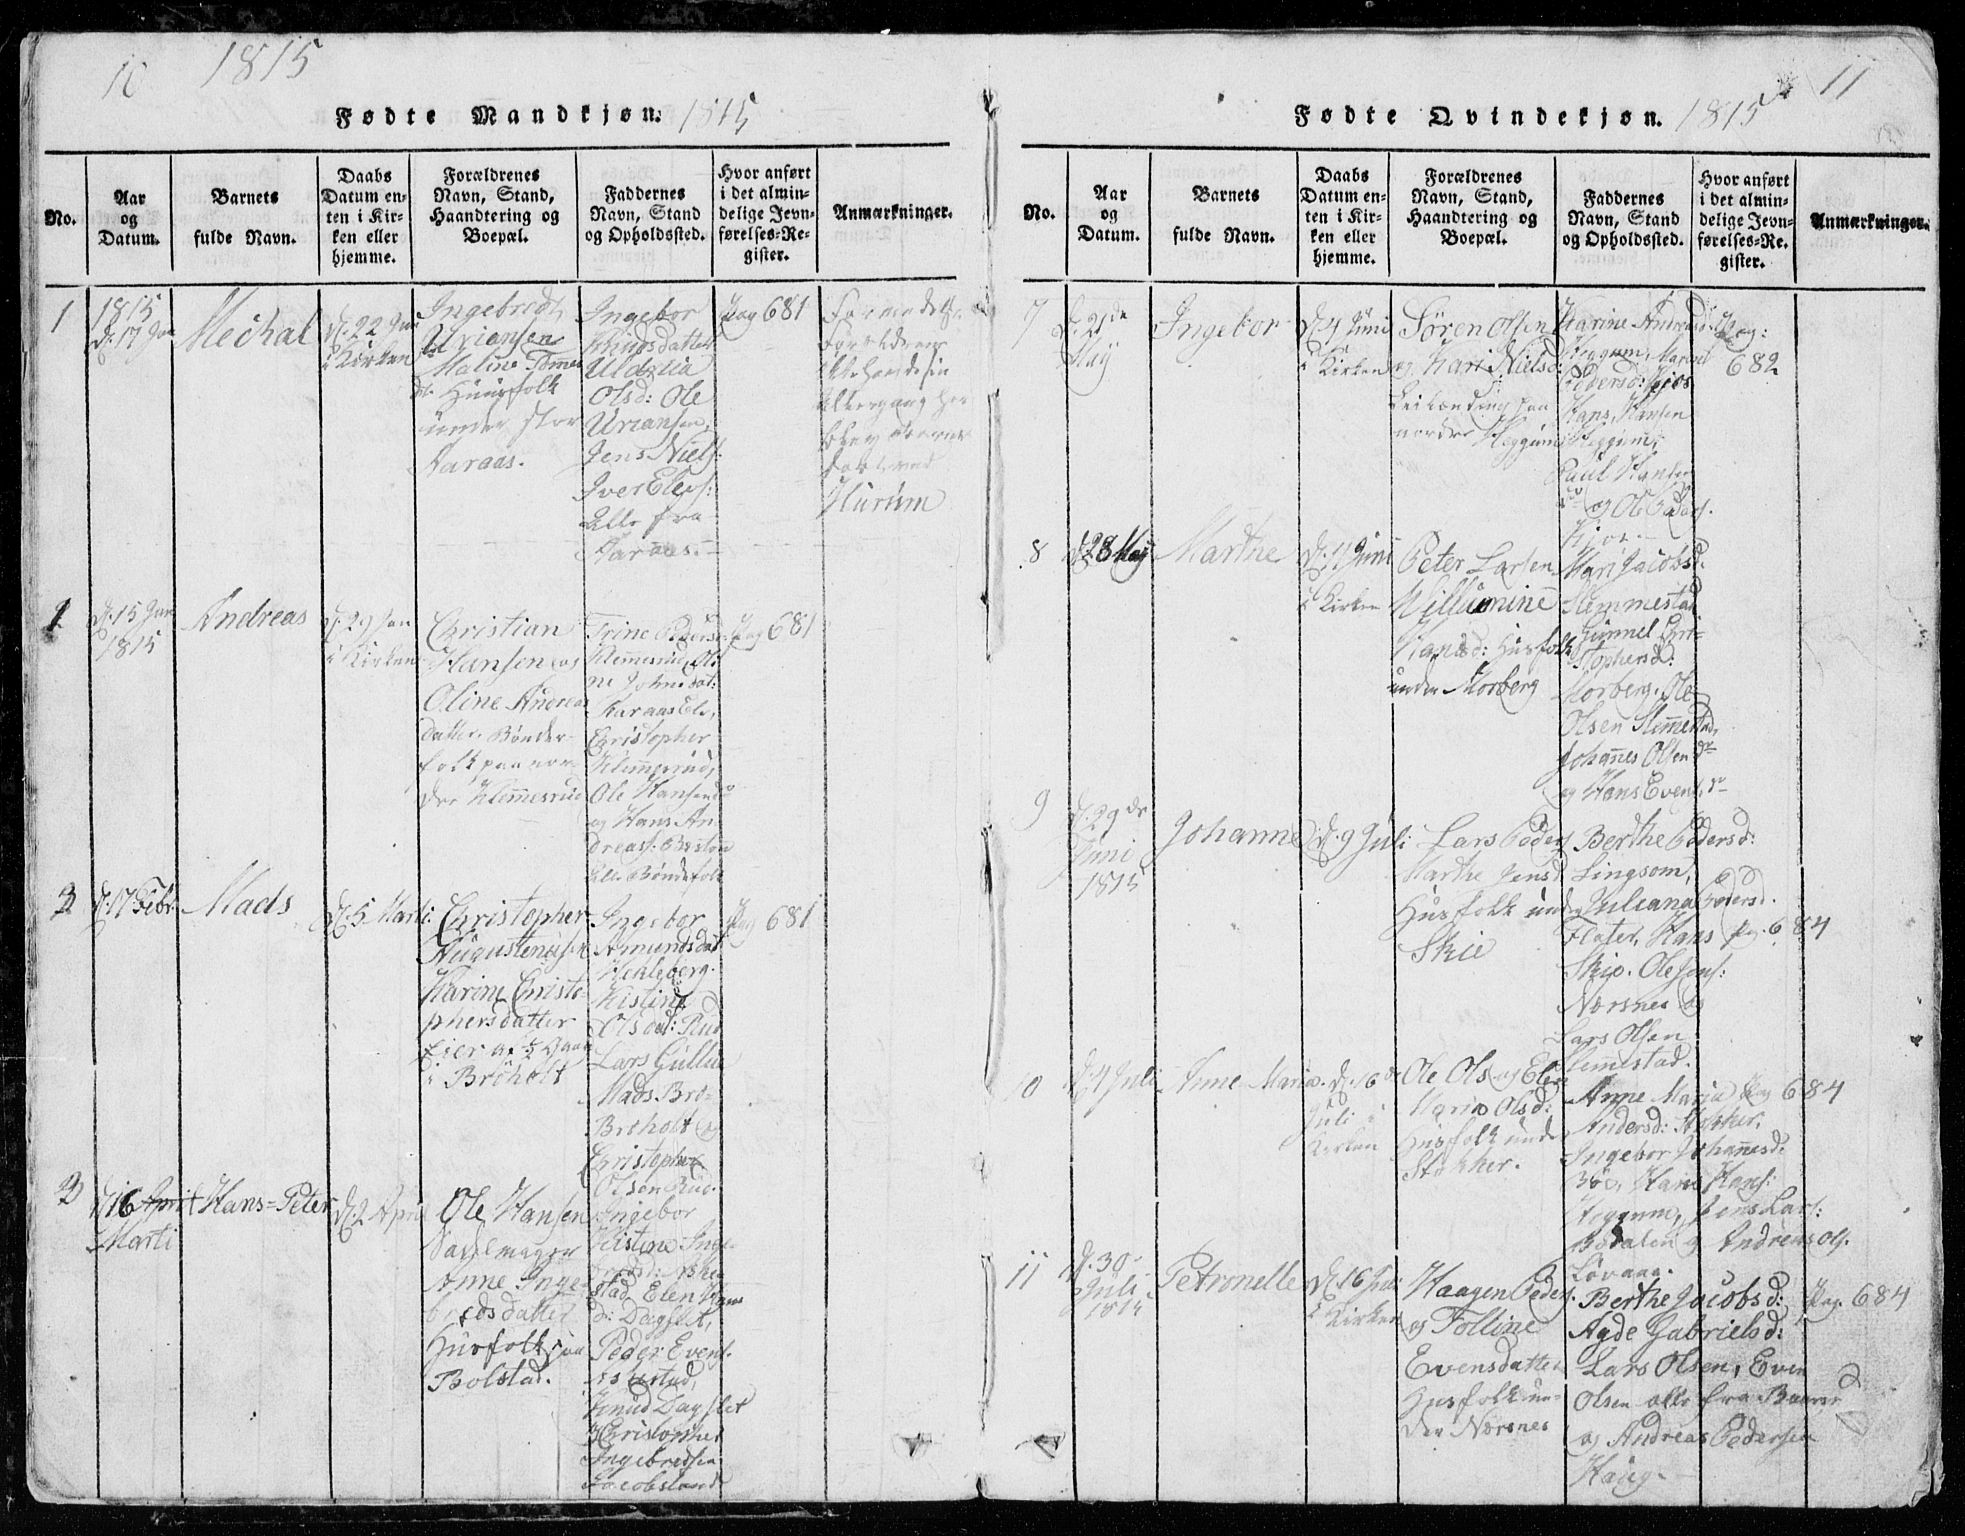 10 1815
Fødte Mandkjøn. 1815
No.
Aar
og
Datum.
Barnets
fulde Navn.
Daabs
Datum en-
ten i Kir-
ken eller
hjemme.
Forældrenes
Navn, Stand,
Haandtering og
Boepæl.
Faddernes
Navn, Stand
og Opholdssted.
Hvor anført
i det almin-
delige Jevn-
førelses-Re-
gister.
Anmærkninger.
1
1815
d. 17 Jan
Mechal
d. 22 Jan
i Kirken
Ingebredt
Uriansen
Maline Tomes
dr. Huusfolk
under stor
Aaraas.
Ingebor
Knudsdatter
Ulderica
Olsd: Ole
Uriansen,
Jens Niels:
Iver Elefs:
alle fra
Aaraas.
Pag 681
Formedelst
Forældrene
ikke
Altergang her
blev
døbt ved
Hurum
d. 15 Jan
1815
Andreas
d. 29 Jan
i Kirken
Christian
Hansen og
Oline Andreas
datter. Bønder-
folk paa nor-
dre Klemesrud
Trine Pedersd:
Klemesrud, Ol-
ne Johnsdat:
Christopher
Klemesrud,
Ole Hansen
og Hans An-
dreass.
alle Bøndefolk
Pag 681
d. 17 Febr.
Mads
d. 5 Marti
Christopher
Augustenusen
Karine Christo-
phersdatter
Eier af ½ Gaard
i Bröholt
Ingebor
Amundsdat.
Hekleberg.
Kistine
Olsdat: Rud
Lars Gullau
Mads Bro-
Broholt og
Christopher
Olsen Rud.
Pag 681
d. 16 April
Marti
Hans-Peter
d. 2 April
Ole Hansen
Sadelmager
Anne Inge-
bredsdatter
Husfolk paa
Bolstad.
Ingebor
Kistine Inge-
bredsd: Aske-
stad, Elen Hans
d: Dagslet,
Peder Evens.
Askestad,
Knud Dagslet
Christopher
Ingebredsen
Jacobsland
11
Fødte Qvindekjøn. 1815
No.
Aar
og
Datum.
Barnets
fulde Navn.
Daabs
Datum en-
ten i Kir-
ken eller
hjemme.
Forældrenes
Navn, Stand,
Haandtering og
Boepæl.
Faddernes
Navn, Stand
og Opholdssted.
Hvor anført
i det almin-
delige Jevn-
førelses-Re-
gister.
Anmærkninger.
7
d. 21de
May
Ingebor
d. 4 Juni
i Kirken
Søren Olsen
og Kari Nielsd:
Leilænding paa
nordre Heggum
Karine Andreasd:
Heggum, Mari
Pedersd: Kjos
Hans Hansen
Heggum,
Paul Hansen
og Ole Peders.
Kjos.
Pag:
682
8
d. 28 May
Marthe
d. 11 Juni
i Kirken
Peter Larsen
Willumine
Hansd: Husfolk
under Morberg
Mari Jacobsd.
Slemmestad
Gunnel Chri-
stophersd:
Morberg. Ole
Olsen Slemestad,
Johannes Olsen do
og Hans Evens. do
9
d. 29de
Juni
1815
Johanne
d. 9 Juli
Lars Peders
Marthe Jensd
Husfolk under
Skie
Berthe Pedersd:
Lingsom,
Juliana Pedersd.
Flater, Hans
Skie. Ole Jens:
Nærsnes og
Lars Olsen
Slemestad.
Pag. 684
10
d. 4 Juli
Anne Maria
d. 16de
Juli i
Kirken
Ole Ols og Elen
Maria Olsd:
Husfolk under
Stokker.
Anne Maria
Andersd: Stokker,
Ingebor Johannesd:
Bøe, Hans Hans:
Heggum, Jens Lars:
Bødalen og Andreas Ols.
Pag 684
11
d. 30
Juli
1815
Petronelle
d. 16 Juli
i Kirken
Haagen Peders.
og Folline
Evensdatter
Husfolk un-
der Nærsnes
Berthe Jacobsd:
Agde Gabrielsd:
Lars Olsen, Even
Olsen alle fra
og Andreas Pedersen
Haug.
Pag. 684